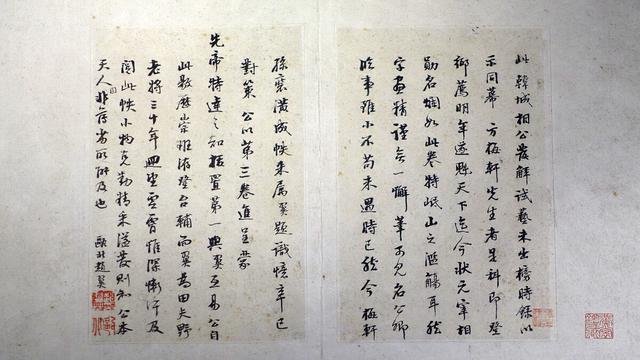 此韓城相公發解試藝未出榜時錄以
示同幕方梅軒先生者是科即登
鄉薦明年遂魁天下迄今狀元宰相
勛名爛如此卷特岷山之濫觴耳然
字畫精謹無一懈筆可見名公鄉
臨事雖小不苟未遇時已然今梅軒
孫襄潢成帙來屬翼題識憶辛巳
對策公以第三卷進呈蒙
先帝特達之知拔置第一與翼互易公自
此敭歷崇班洊登台輔而翼為田夫野
老將三十年回望雲霄惟深慚汗及
閱此帙小物克勤精采溢發則知公本
天人非庸劣所能及也 歐北趙翼